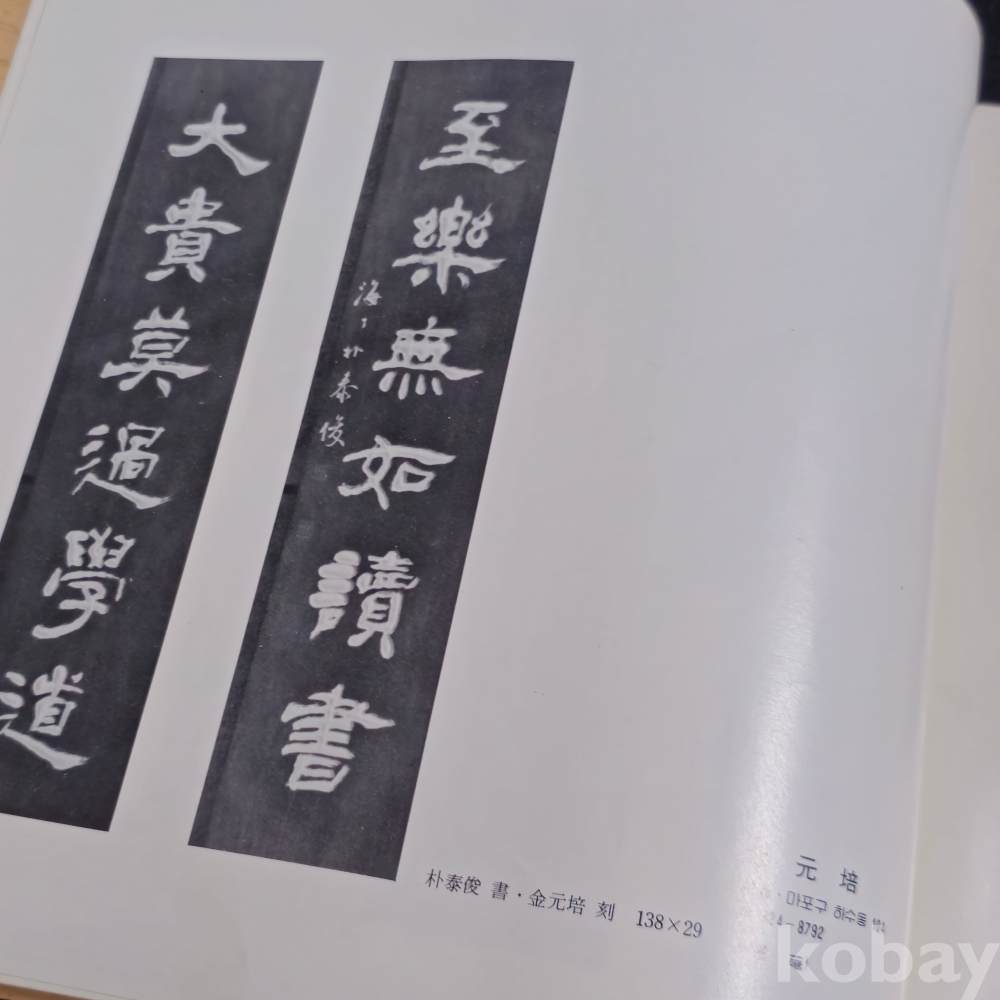 至樂無如讀書
大貴莫過學道
朴泰俊
朴泰俊 書・金元培 刻 138×29
元培
마포구 하수동
4-8792
kobay